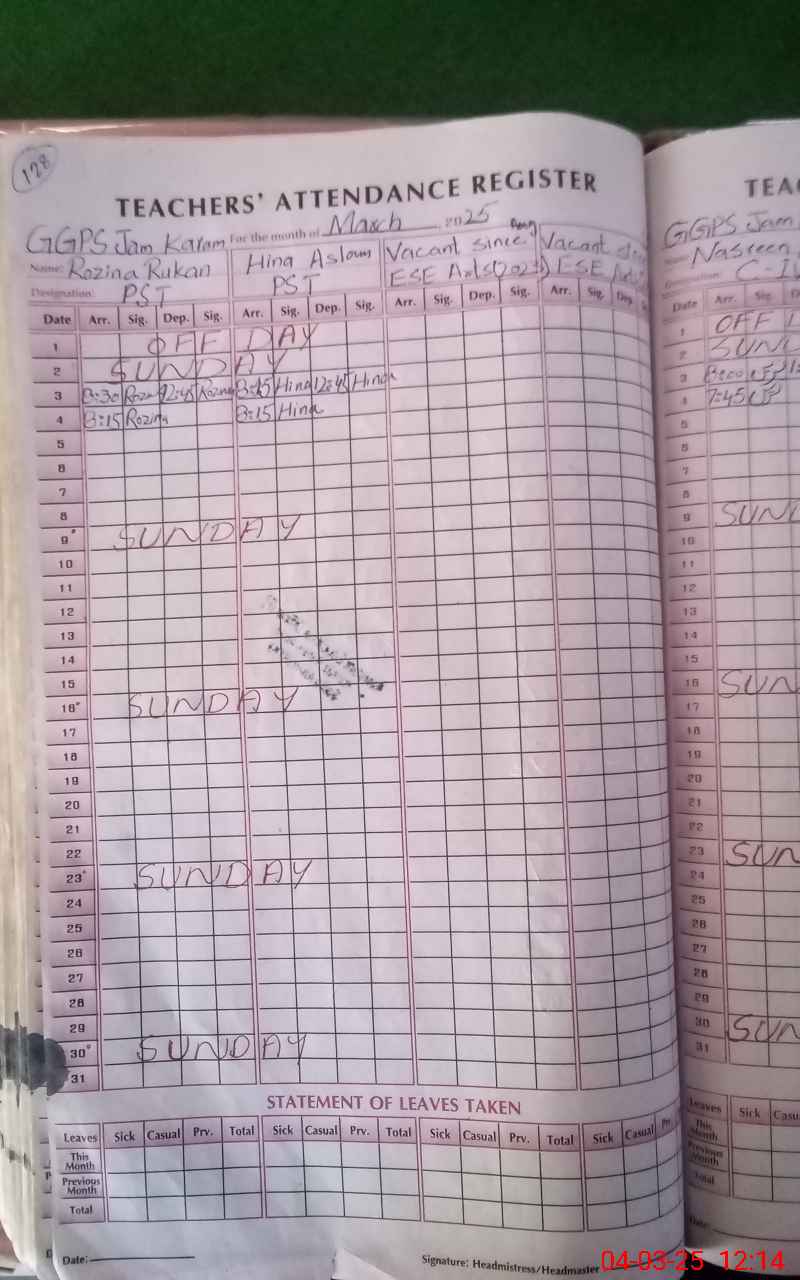 128
TEACHERS' ATTENDANCE REGISTER
GGPS Jam Karam For the month of March 2025
Name: Rozina Rukan Hina Aslam Vacant since Vacant
Designation: PST PST ESE Arts(2023) ESE
Date Arr. Sig. Dep. Sig. Arr. Sig. Dep. Sig. Arr. Sig. Dep. Sig. Arr. Sig. Dep.
1 OFF DAY
2 SUNDAY
3 8:30 Rozina 12:45 Rozina 8:15 Hina 12:45 Hina
4 8:15 Rozina 8:15 Hina
5
6
7
8
9 SUNDAY
10
11
12
13
14
15
16 SUNDAY
17
18
19
20
21
22
23 SUNDAY
24
25
26
27
28
29
30 SUNDAY
31
STATEMENT OF LEAVES TAKEN
Leaves Sick Casual Prv. Total Sick Casual Prv. Total Sick Casual Prv. Total Sick Casual
This Month
Previous Month
Total
Date:
Signature: Headmistress/Headmaster
TEA
GGPS Jam
Nasreen
C-IV
Date Arr. Sig.
1 OFF
2 SUN
3 8:00
4 7:45
5
6
7
8
9 SUN
10
11
12
13
14
15
16 SUN
17
18
19
20
21
22
23 SUN
24
25
26
27
28
29
30 SUN
31
Leaves Sick
This Month
Previous Month
Total
Date:
04-03-25 12:14